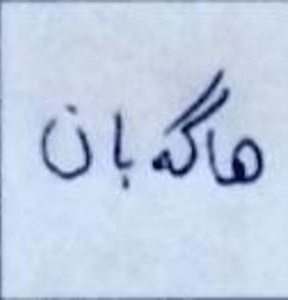 هاگه بان